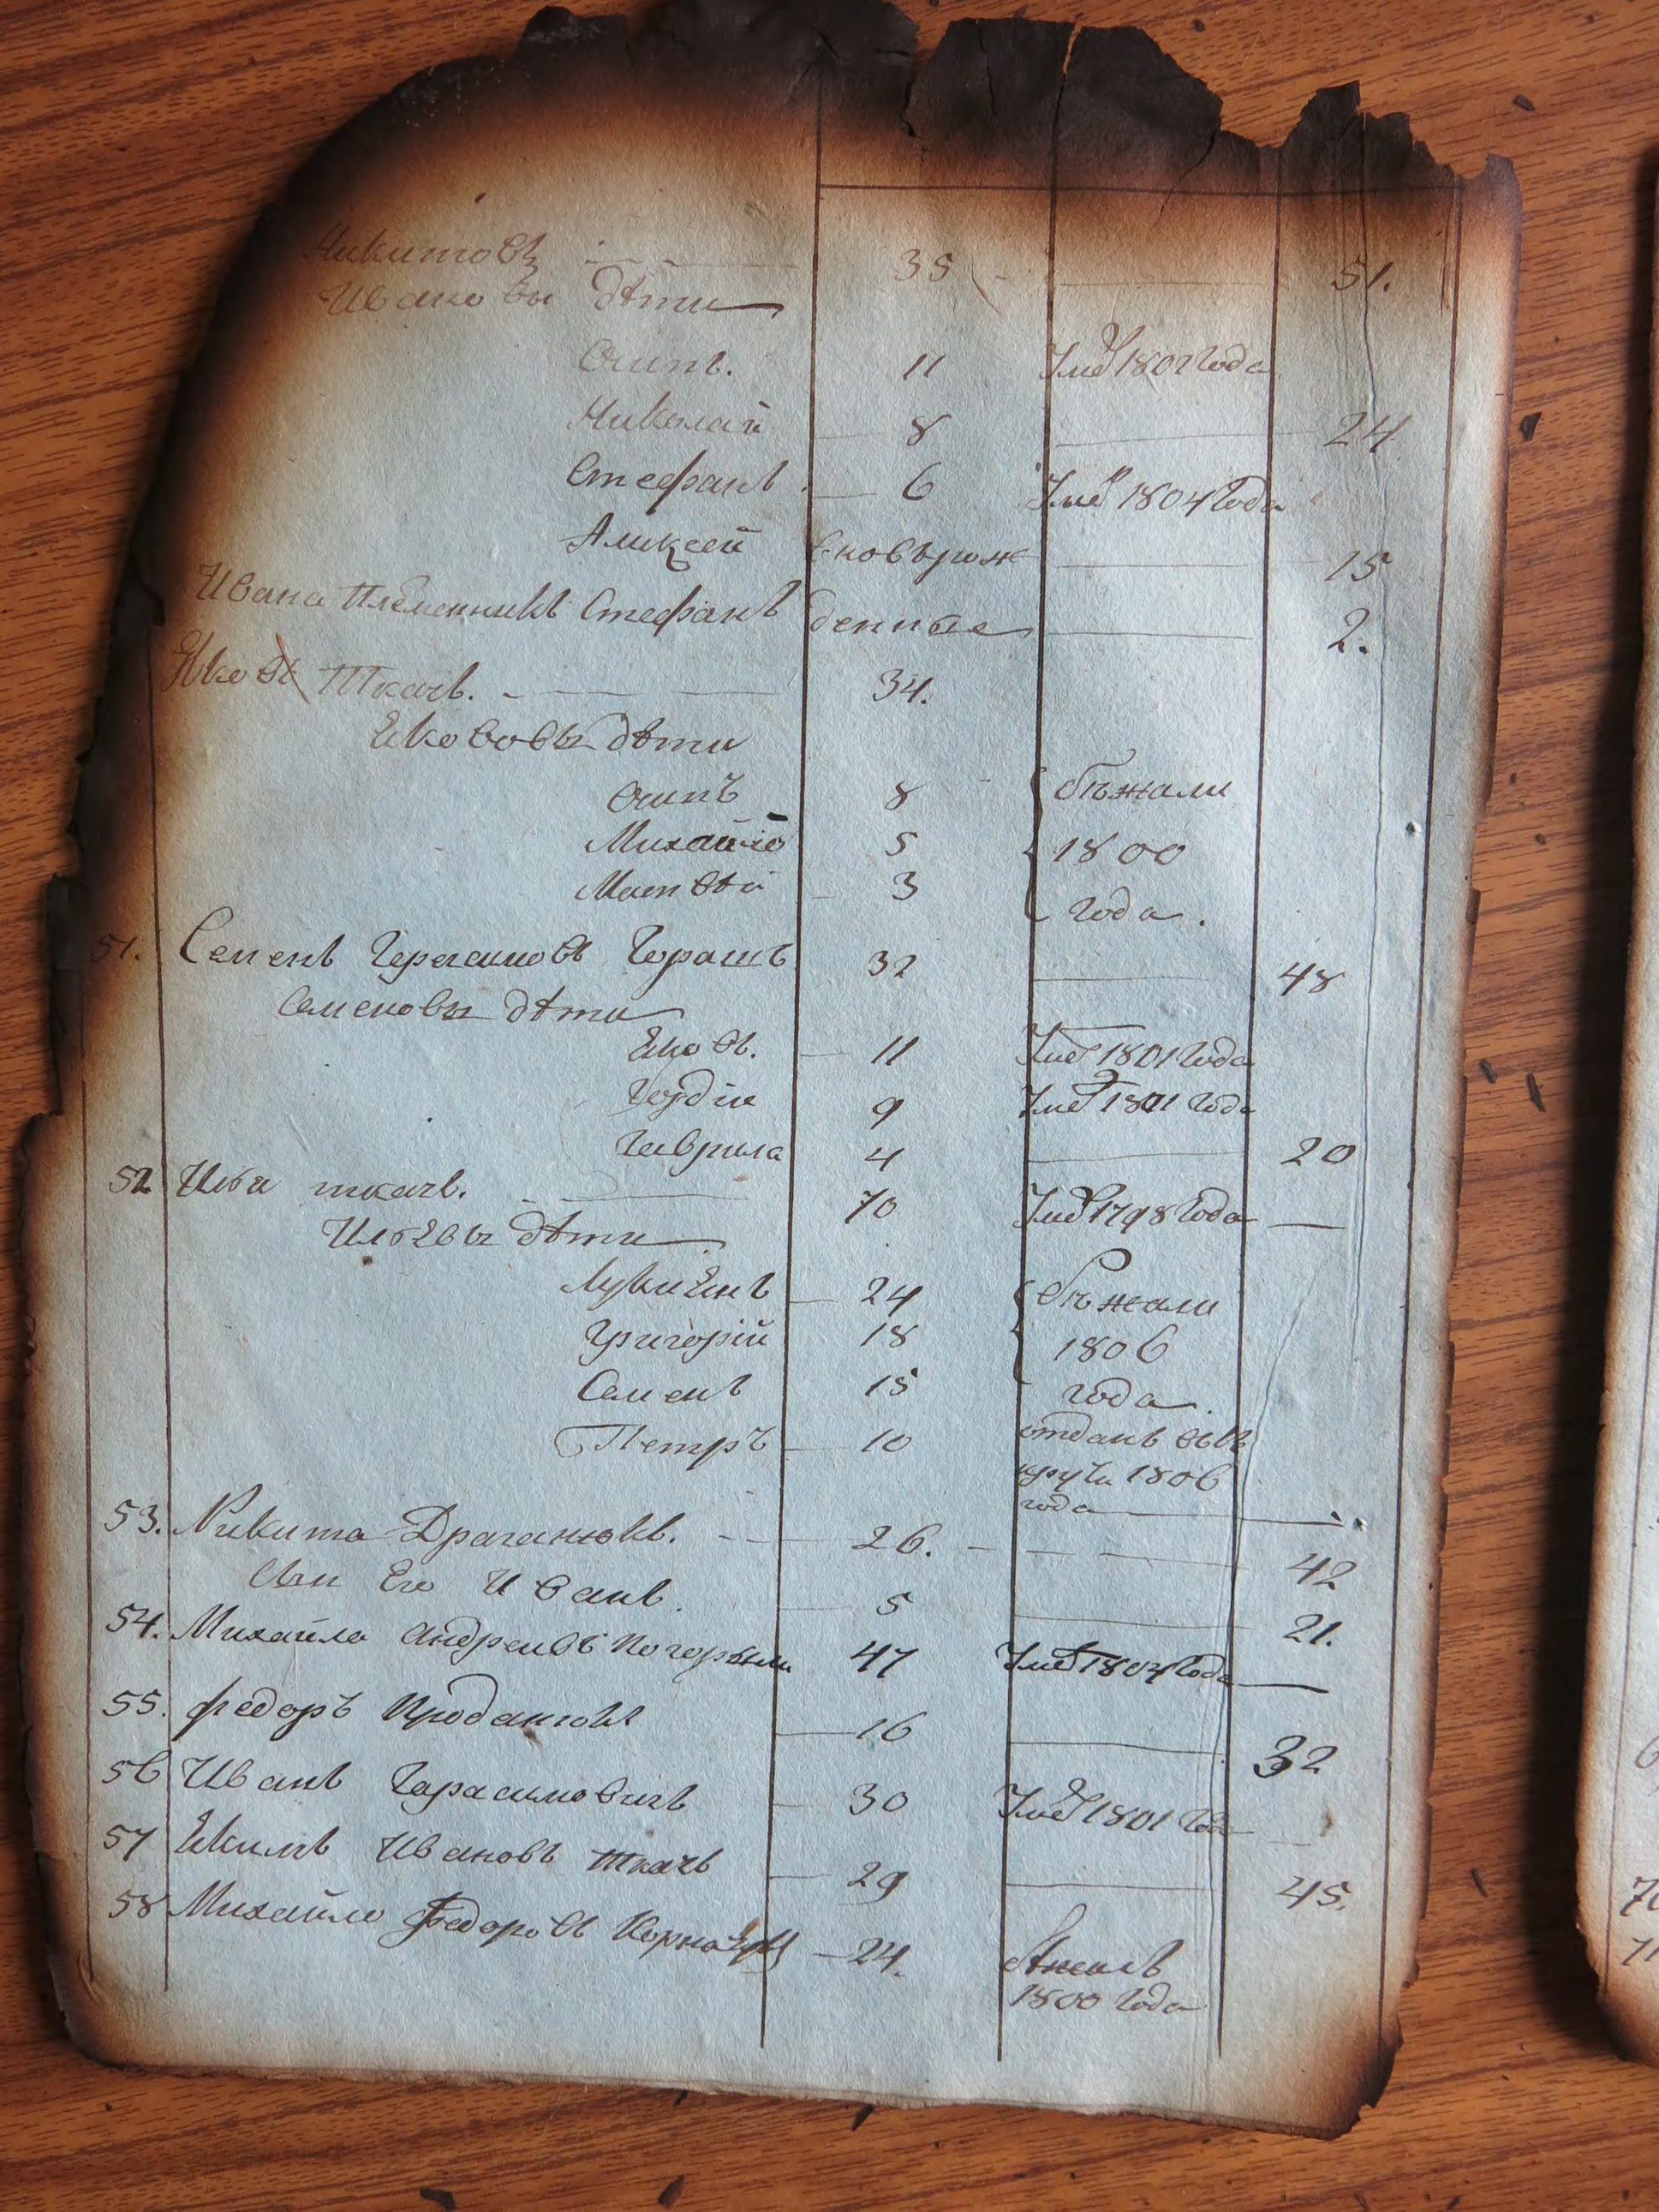 Никитовъ 35 51.
Ивановы дѣти
Осипъ. 11 Умер 1802 года
Николай 8 24
Стефанъ 6 Умер 1804 года
Аликсей вновърож 15
Ивана племенникъ Стефанъ денные 2.
Яковъ Ткачъ. 34.
Якововы дѣти
Осипъ 8 бѣжали
Михайло 5 1800
Матвѣй 3 года.
51. Семенъ Герасимовъ Горашъ 32 48
Семеновы дѣти
Яковъ. 11 Умер 1801 года
Гордій 9 Умер 1801 года
Гаврила 4 20
52 Илья ткачъ. 70 Умер 1798 года
Ильевы дѣти
Лукиянъ 24 бѣжали
Григорій 18 1806
Семенъ 15 года.
Петръ 10 отданъ врѣ
круты 1806
года
53. Никита Драганюкъ. 26. 42
Сын Его Иванъ. 5 21.
54. Михайла Андреивъ 47 Умер 1804 года
55. Федоръ Проданюкъ 16 32
56 Иванъ Герасимовичъ 30 Умер 1801 года
57 Якимъ Ивановъ ткачъ 29 45.
58 Михайло Федоровъ 24. бѣжалъ
1800 года